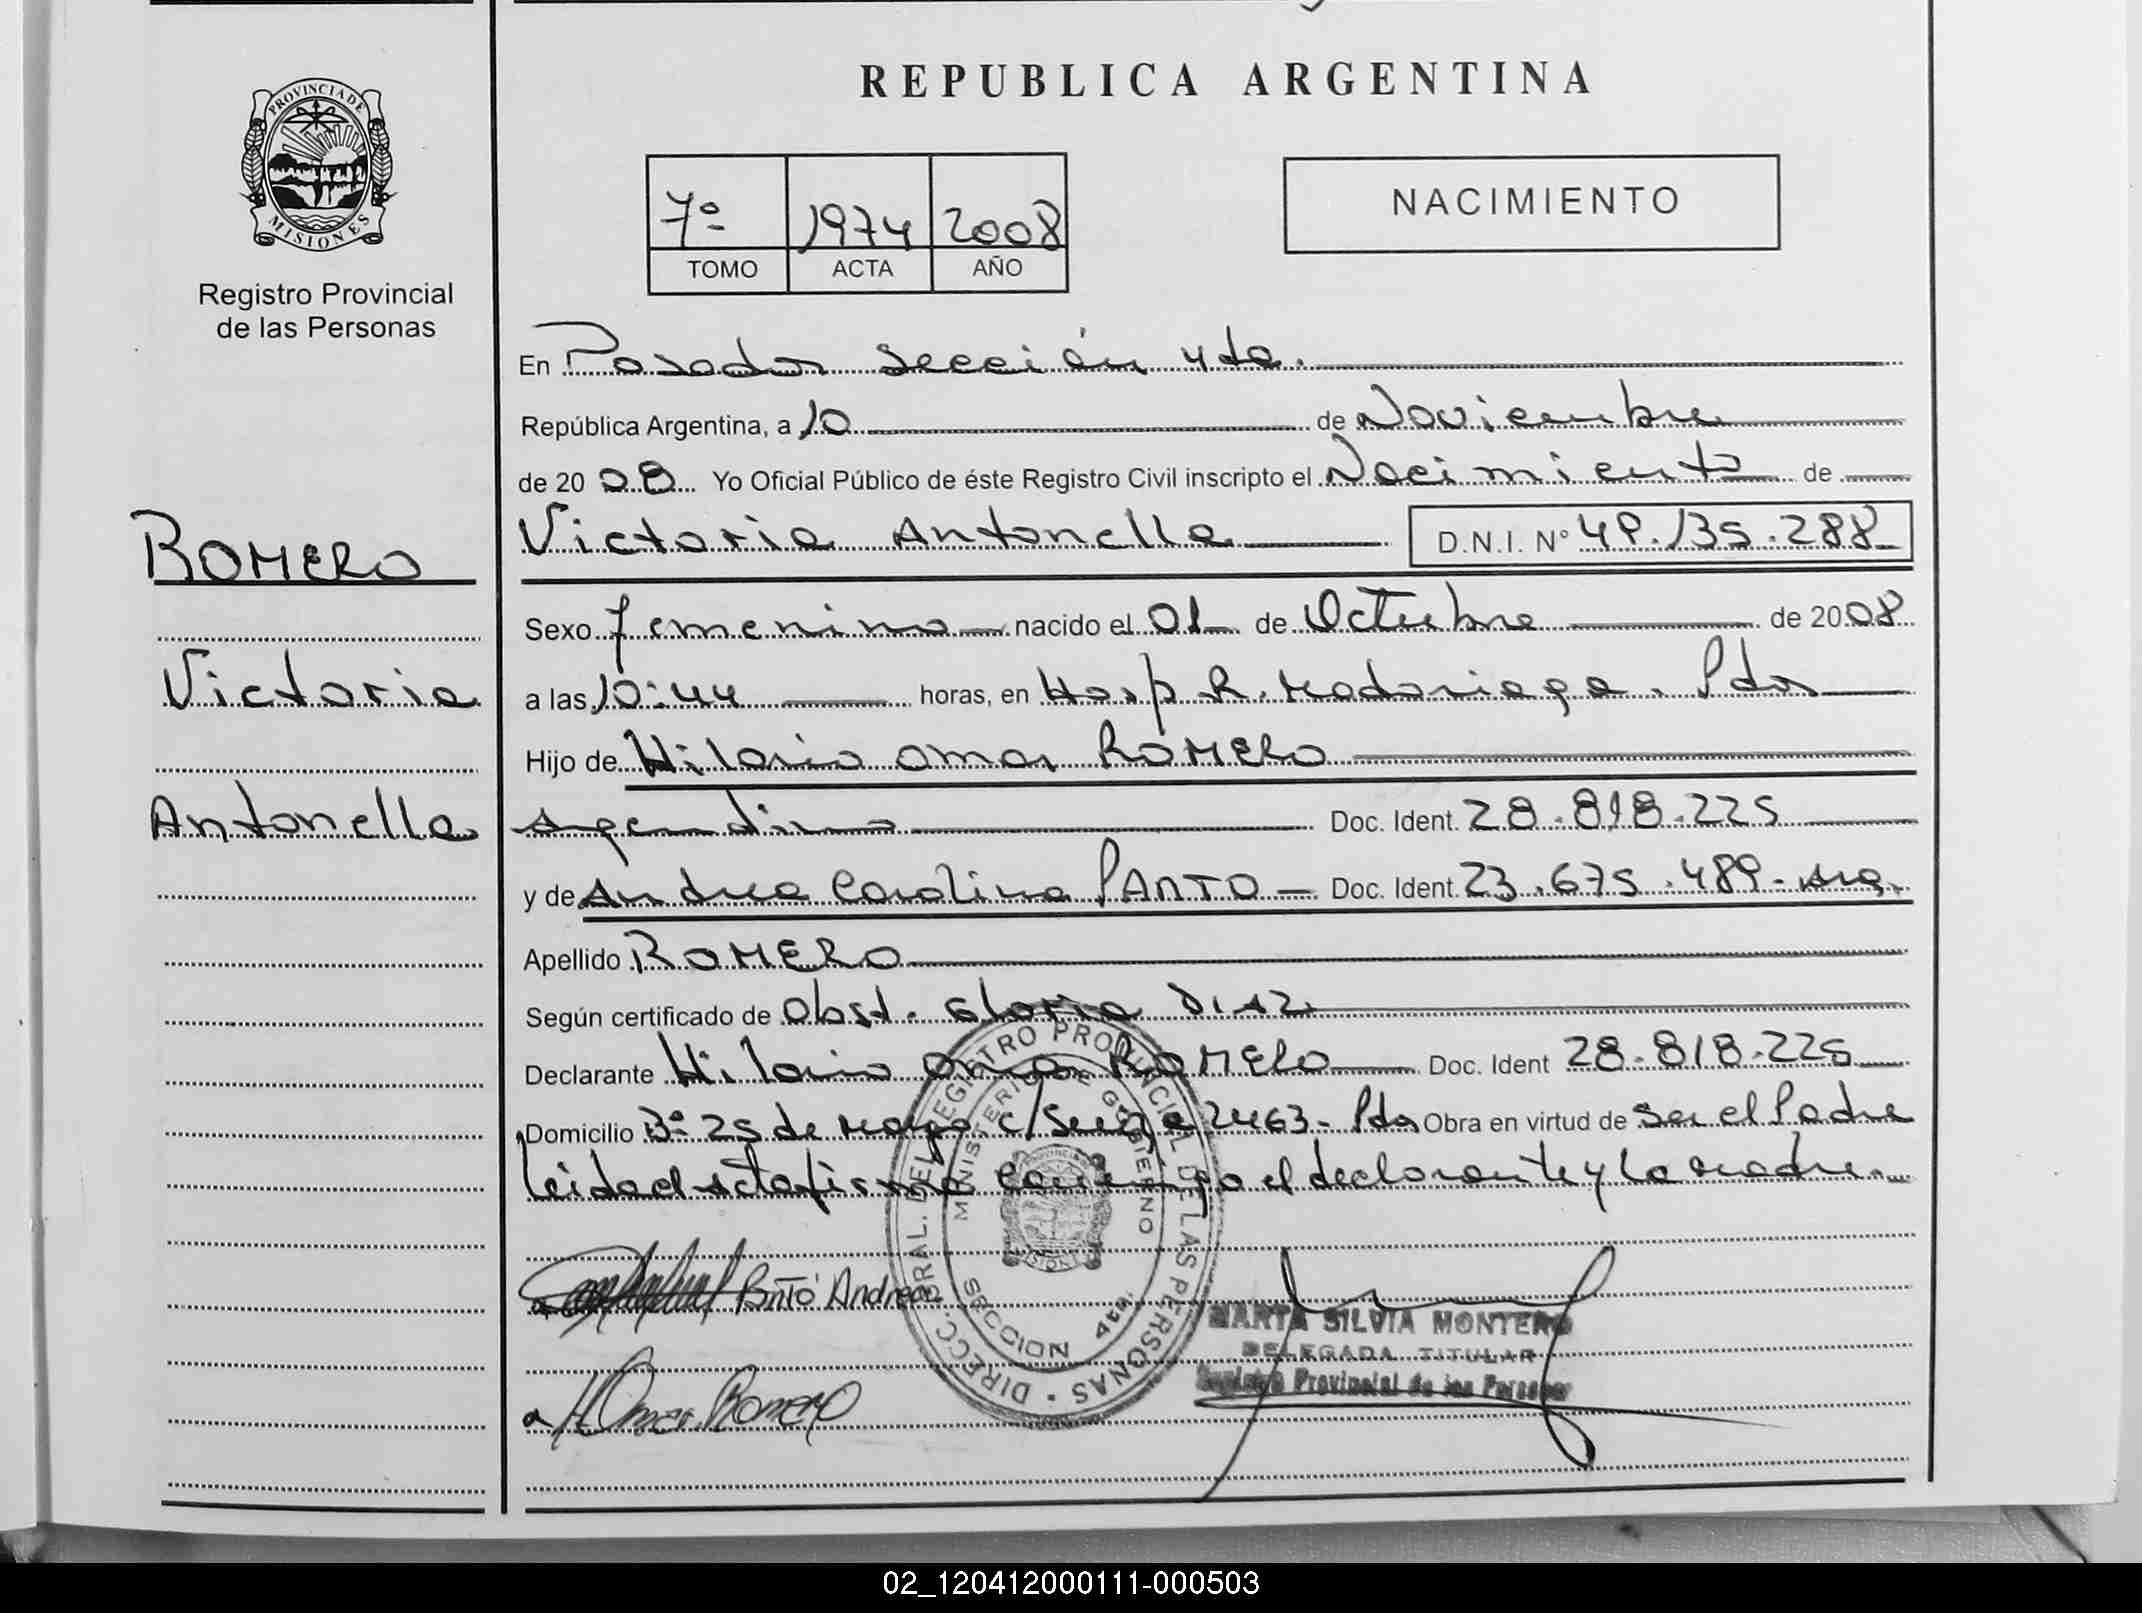 REPUBLICA ARGENTINA
PROVINCIA DE
MISIONES
Registro Provincial
de las Personas
7º 1974 2008
TOMO ACTA AÑO
NACIMIENTO
En Posadas Sección 4ta.
República Argentina, a 10 de Noviembre
de 2008 Yo Oficial Público de éste Registro Civil inscripto el Nacimiento de
Victoria Antonella D.N.I. Nº 49.135.288
ROMERO
Victoria
Antonella
Sexo femenino nacido el 01 de Octubre de 2008
a las 10:44 horas, en Hosp R. Madariaga. Pdas
Hijo de Hilario Omar ROMERO
Argentino Doc. Ident. 28.818.225
y de Andrea Carolina Doc. Ident. 23.675.489 - Arg.
Apellido ROMERO
Según certificado de Obst. Gloria DIAZ
Declarante Hilario Omar ROMERO Doc. Ident 28.818.225
Domicilio Bº 25 de Mayo c/ 2463 - Pdas Obra en virtud de Ser el Padre
Leida el acta firma conmigo el declarante y la madre.
Andrea
Omar Romero
DIRECC. GRAL. DEL REGISTRO PROVINCIAL DE LAS PERSONAS
MINISTERIO DE GOBIERNO
SECCION 4ta.
MARTA SILVIA MONTERO
DELEGADA TITULAR
Registro Provincial de las Personas
02_120412000111-000503